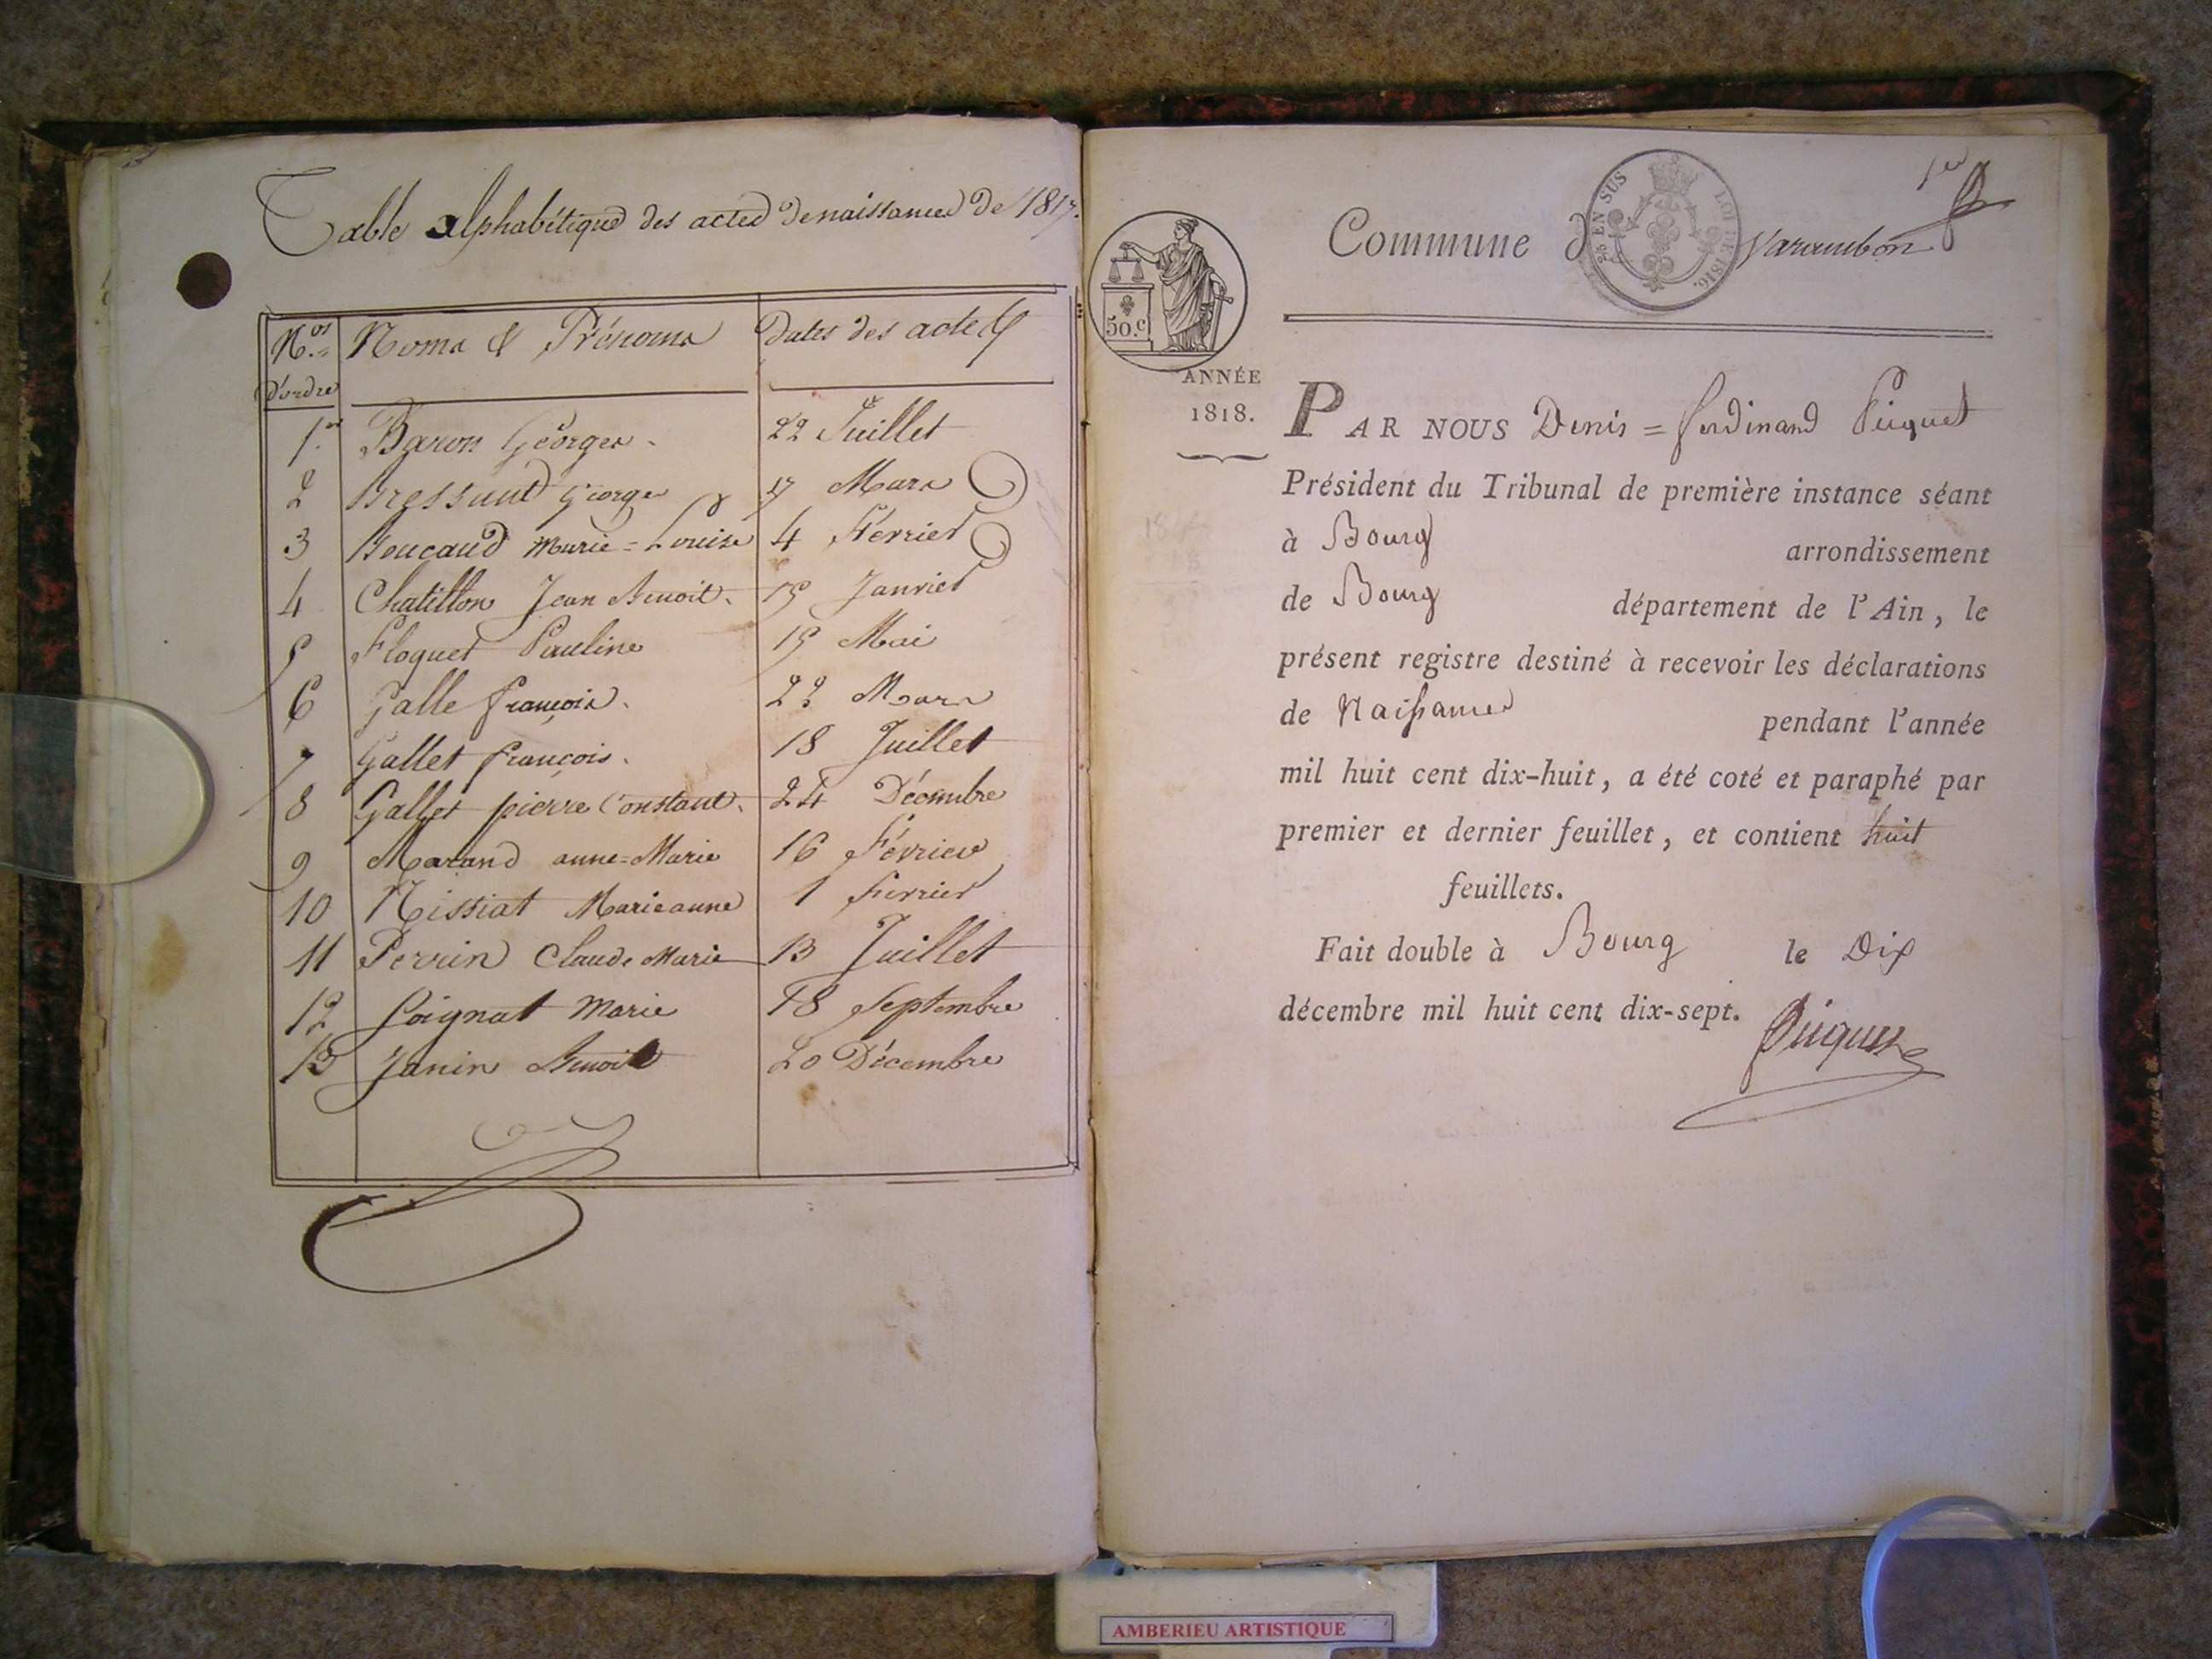 Table alphabétique des actes de naissances de 1817.
N.os d'ordre Noms & Prénoms Dates des actes
1.er Baron Georges. 22 Juillet
2 Bressand George 17 Mars
3 Boucaud Marie=Louise 4 Février
4 Chatillon Jean Benoit. 15 Janvier
5 Floquet Pauline 15 Mai
6 Galle françois. 22 Mars
7 Gallet françois. 18 Juillet
8 Gallet pierre Constant. 24 Décembre
9 Marand anne=Marie 16 Février
10 Nissiat Marieanne 1 février
11 Perrin Claude Marie 13 Juillet
12 Poignat Marie 18 Septembre
13 Janin Benoit 20 Décembre
1er
25 EN SUS LOI DE 1816.
Commune de Varambon
50.c
ANNÉE
1818.
PAR NOUS Denis=ferdinand Piquet
Président du Tribunal de première instance séant
à Bourg arrondissement
de Bourg département de l'Ain, le
présent registre destiné à recevoir les déclarations
de Naissances pendant l'année
mil huit cent dix-huit, a été coté et paraphé par
premier et dernier feuillet, et contient huit
feuillets.
Fait double à Bourg le Dix
décembre mil huit cent dix-sept.
Piquet
AMBERIEU ARTISTIQUE